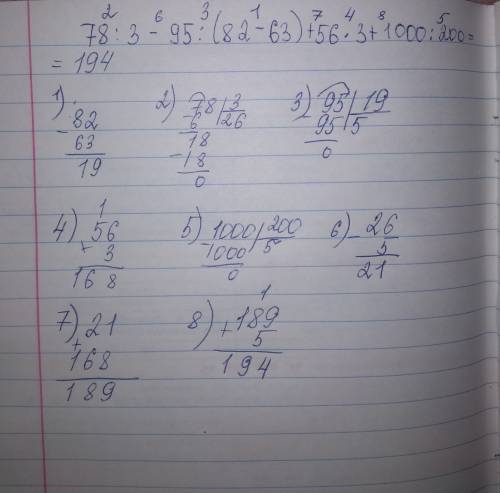 2 6 3 1 7 4 8 5
78 : 3 - 95 : (82 - 63) + 56 · 3 + 1000 : 200 =
= 194
1) 2) 78 | 3 3) 95 | 19
- 82 - 6 | 26 - 95 | 5
63 18 0
19 - 18
0
1
4) 56 5) 1000 | 200 6) - 26
× 3 - 1000 | 5 5
168 0 21
1
7) + 21 8) + 189
168 5
189 194